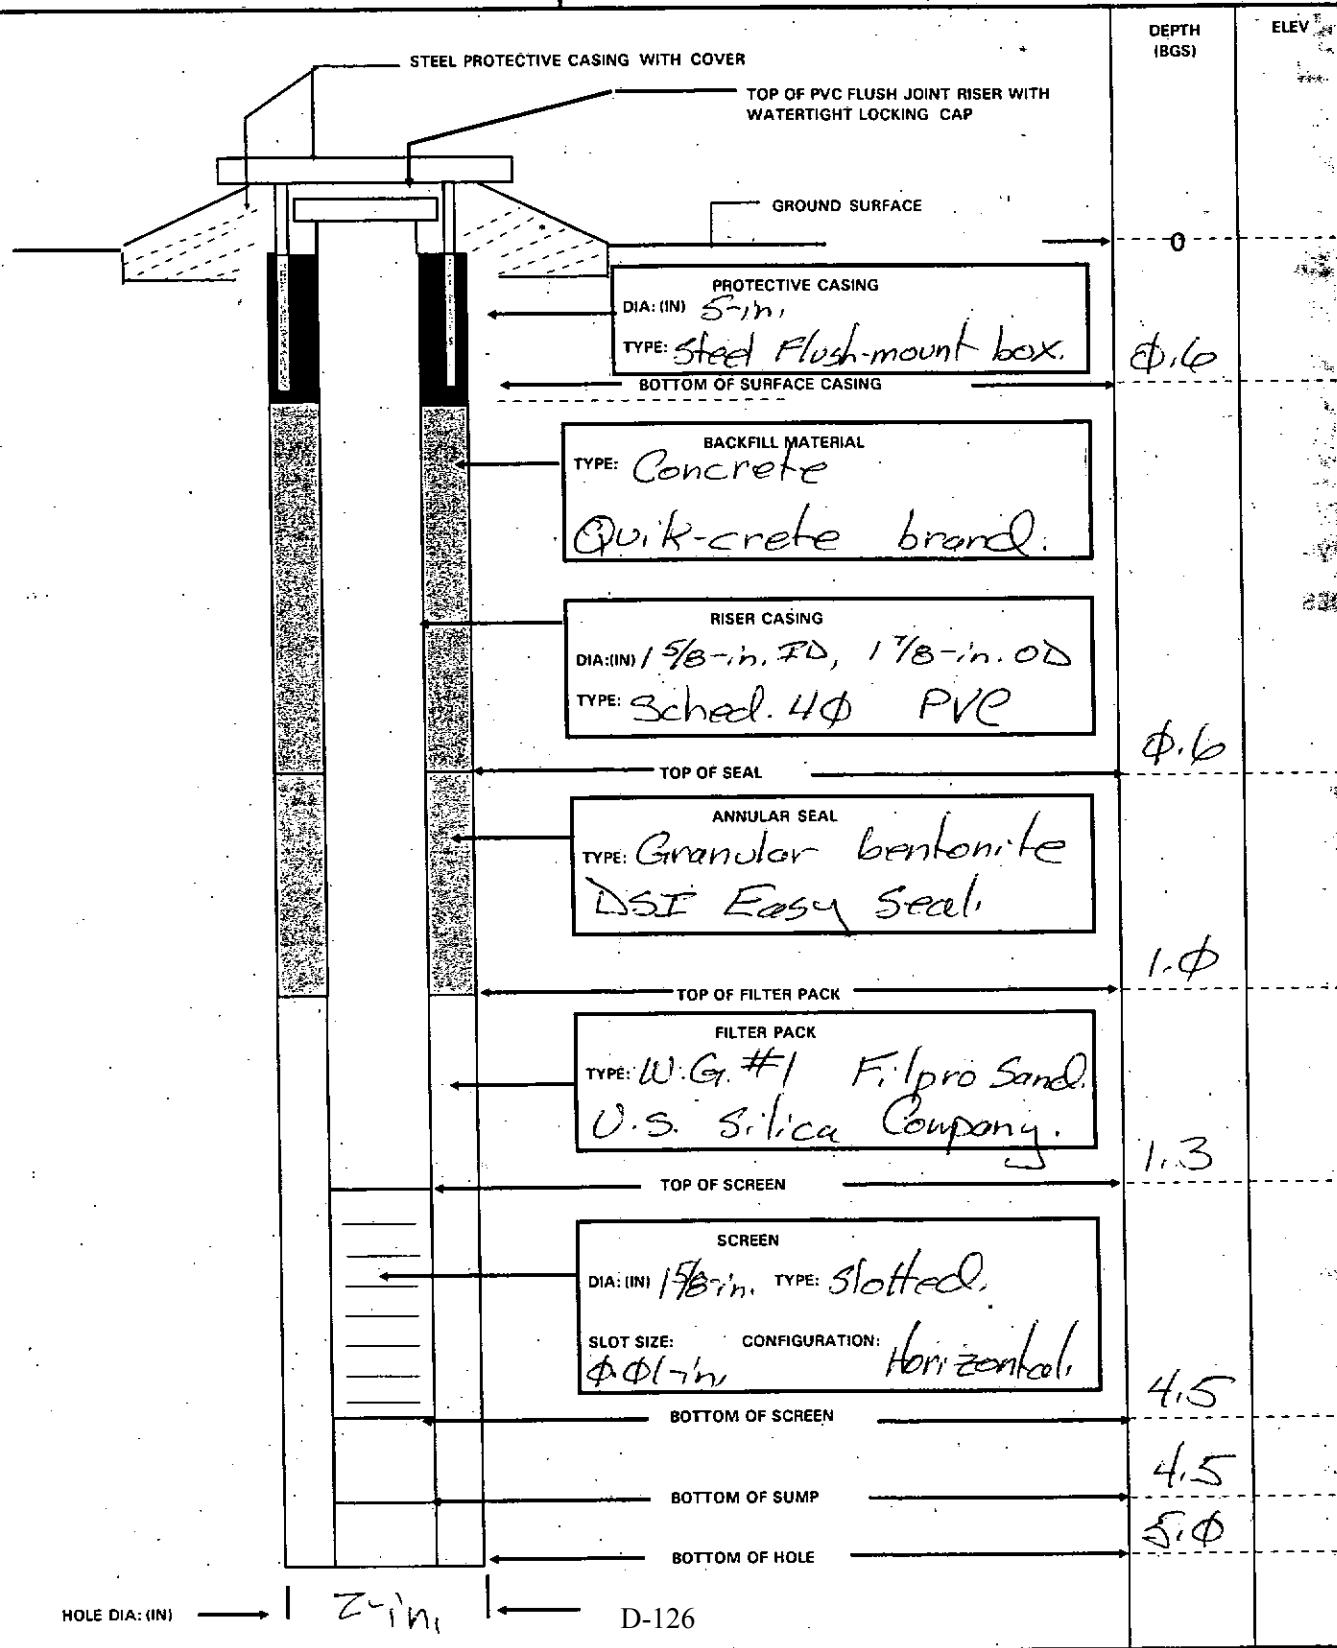 DEPTH
(BGS)
ELEV
STEEL PROTECTIVE CASING WITH COVER
TOP OF PVC FLUSH JOINT RISER WITH
WATERTIGHT LOCKING CAP
GROUND SURFACE
0
PROTECTIVE CASING
DIA: (IN) 5-in.
TYPE: Steel Flush-mount box.
Ø.6
BOTTOM OF SURFACE CASING
BACKFILL MATERIAL
TYPE: Concrete
Quik-crete brand.
RISER CASING
DIA:(IN) 1 5/8-in. ID, 1 7/8-in. OD
TYPE: Sched. 4Ø PVC
Ø.6
TOP OF SEAL
ANNULAR SEAL
TYPE: Granular bentonite
DSI Easy Seal.
1.Ø
TOP OF FILTER PACK
FILTER PACK
TYPE: W.G. #1 Filpro Sand.
U.S. Silica Company.
1.3
TOP OF SCREEN
SCREEN
DIA: (IN) 1 5/8-in. TYPE: Slotted.
SLOT SIZE: CONFIGURATION: Horizontal.
Ø.Ø1-in.
4.5
BOTTOM OF SCREEN
4.5
BOTTOM OF SUMP
5.Ø
BOTTOM OF HOLE
HOLE DIA: (IN) 2-in.
D-126